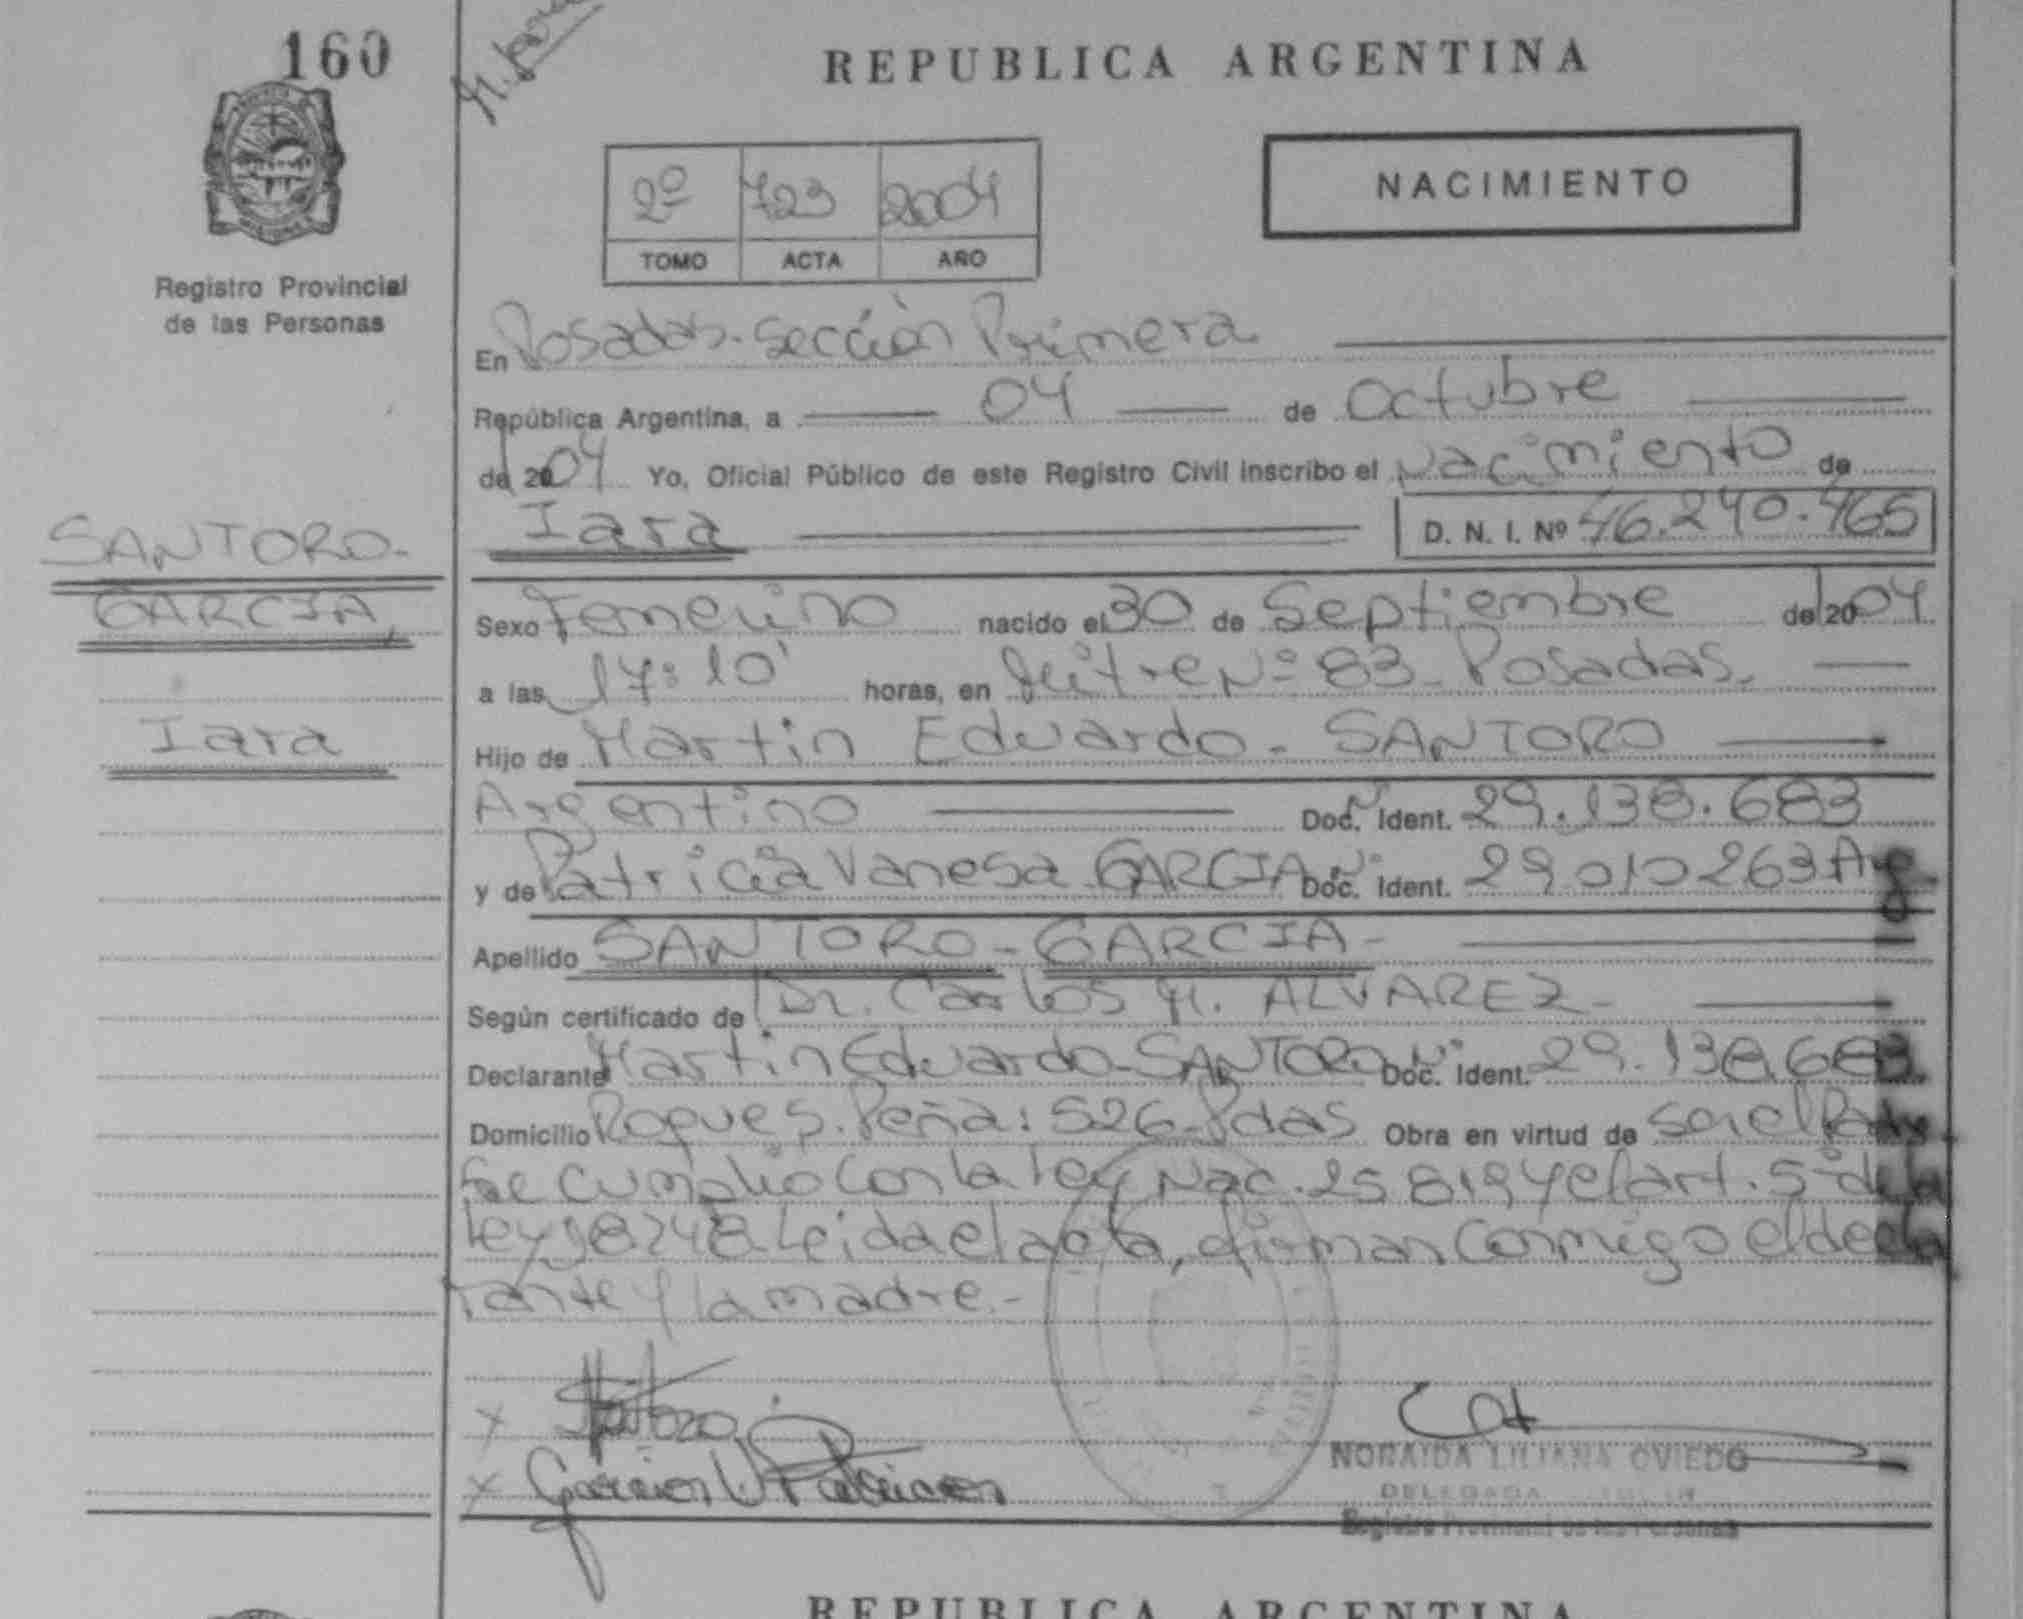 160
REPUBLICA ARGENTINA
NACIMIENTO
2º 723 2004
TOMO ACTA AÑO
Registro Provincial
de las Personas
En Posadas. Sección Primera
República Argentina, a 04 de Octubre
de 2004 Yo, Oficial Público de este Registro Civil inscribo el Nacimiento de
Iara D. N. I. Nº 46.240.465
SANTORO-
GARCIA,
Iara
Sexo Femenino nacido el 30 de Septiembre de 2004
a las 17:10' horas, en Mitre Nº 83 - Posadas.
Hijo de Martin Eduardo - SANTORO
Argentino Doc. Nº Ident. 29.138.683
y de Patricia Vanesa GARCIA Doc. Nº Ident. 29.010.263 Arg
Apellido SANTORO - GARCIA -
Según certificado de Dr. Carlos M. ALVAREZ -
Declarante Martin Eduardo - SANTORO Doc. Nº Ident. 29.138.683
Domicilio Roque S. Peña: 526 - Pdas Obra en virtud de ser el Padre
Se cumplió con la ley Nac. 25.819 y el art. 5º de la
ley 18248. Leída el acta, firman conmigo el decla
rante y la madre.-
x Santoro
x Garcia V Patricia
NORAIDA LILIANA OVIEDO
DELEGADA
Registro Provincial de las Personas
REPUBLICA ARGENTINA